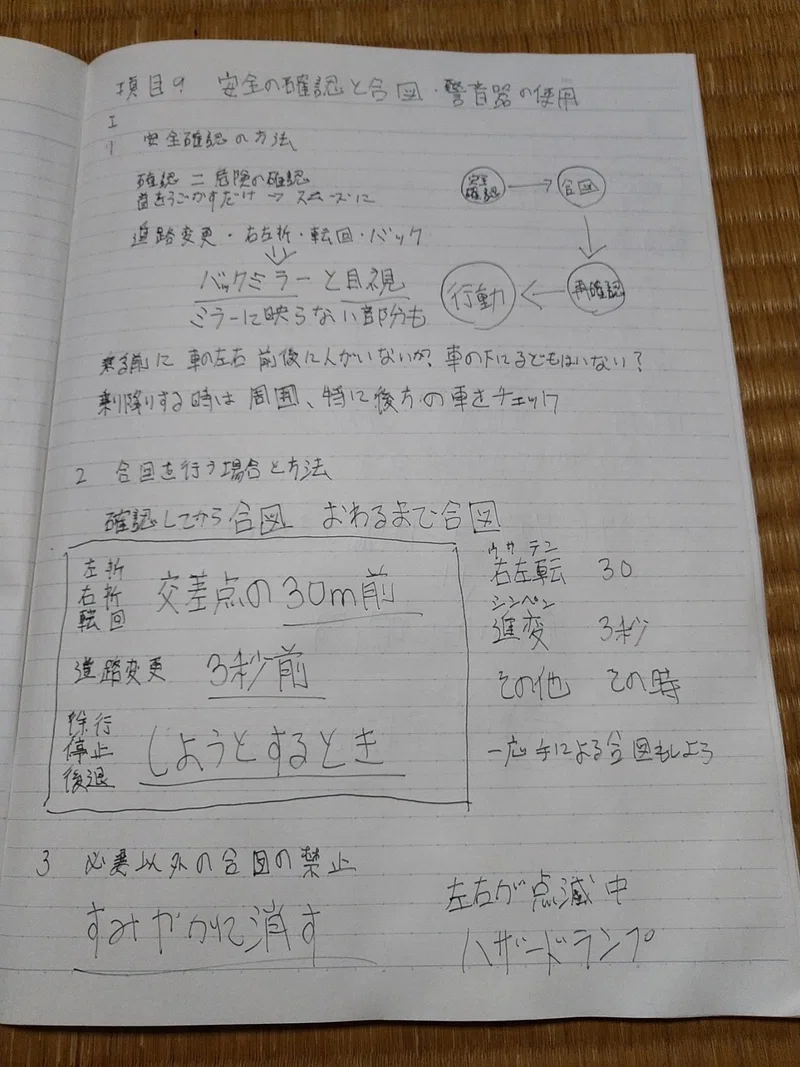 項目9 安全の確認と合図・警音器の使用
I
1 安全確認の方法
確認 = 危険の確認
首をうごかすだけ → スムーズに
進路変更・右左折・転回・バック
↓
バックミラーと目視
ミラーに映らない部分も
安全確認 → 合図
↓
再確認
← 行動
乗る前に 車の左右 前後に人がいないか、車の下に子どもはいない?
乗り降りする時は 周囲、特に後方の車をチェック
2 合図を行う場合と方法
確認してから合図 おわるまで合図
左折
右折
転回
交差点の30m前
進路変更 3秒前
徐行
停止
後退
しようとするとき
ウサテン
右左転 30
シンペン
進変 3秒
その他 その時
一応手による合図もしよう
3 必要以外の合図の禁止
すみやかに消す
左右が点滅中
ハザードランプ